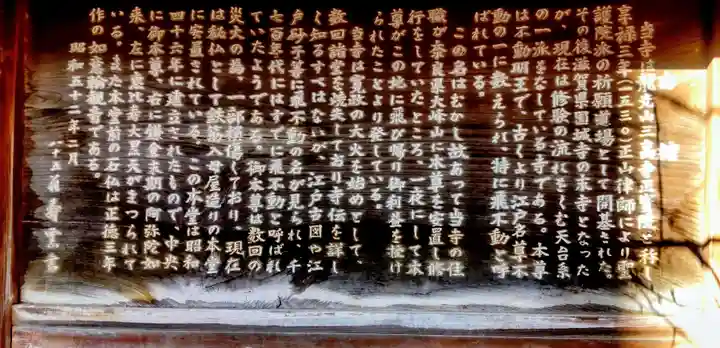 当寺は龍光山三高寺正寶院と称し
享禄三年(一五三〇)正山律師により聖
護院派の祈願道場として開基された。
その後滋賀県園城寺の末寺となった
が、現在は修験の流れをくむ天台系
の一派をなしている寺である。本尊
は不動明王で、古くより江戸名草不
動の一に数えられ、特に飛不動と呼
ばれている。
この名はむかし故あって当寺の住
職が奈良県大峰山に本尊を安置し修
行をしていたところ、一夜にして本
尊がこの地に飛び帰り御利益を授け
られたことより発している。
当寺は寛政の大火を始めとして、
数回諸堂を焼失しており寺伝を詳し
く知るすべはないが、江戸古図や江
戸砂子等に飛不動の名が見られ、千
七百年代にはすでに飛不動と呼ばれ
ていたようである。御本尊は数回の
災火の為、一部損傷しており、現在
は秘仏として鉄筋入母屋造りの本堂
に安置されている。この本堂は昭和
四十六年に建立されたもので、中央
に御本尊、右に鎌倉末期の阿弥陀如
来、左に恵比寿大黒天がまつられて
いる。また本堂前の石仏は正徳三年
作の如意輪観音である。
昭和五十二年二月